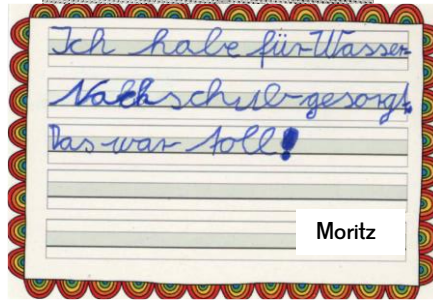 Ich habe für Wasser-
Nachschub gesorgt.
Das war toll!
Moritz